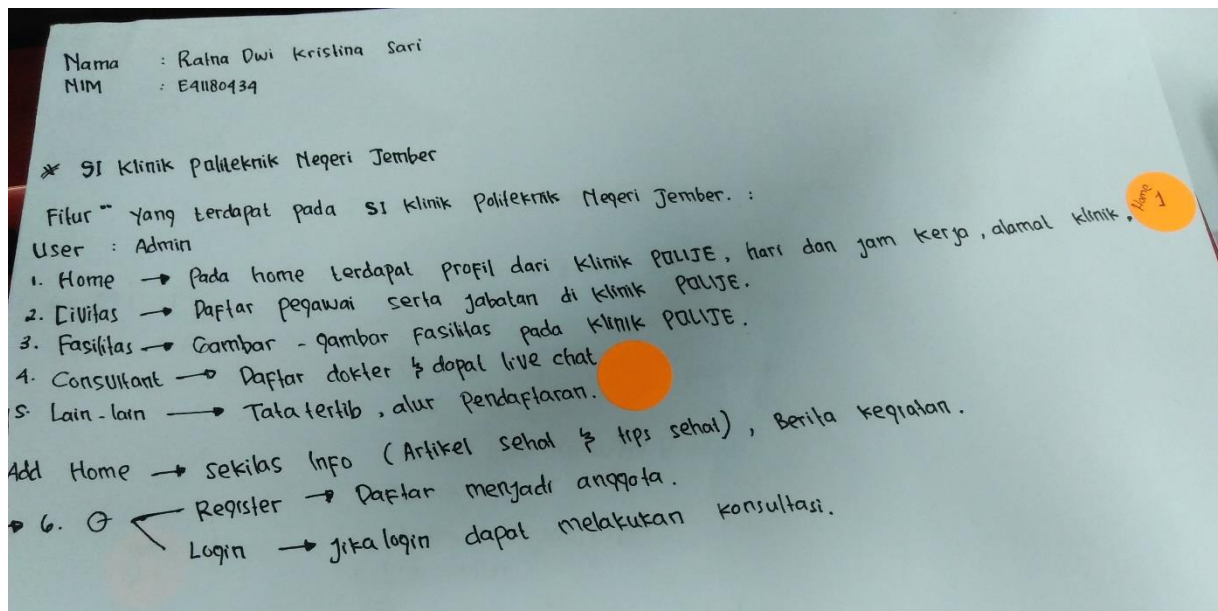 Nama : Ratna Dwi Kristina Sari
NIM : E41180434
* SI Klinik Politeknik Negeri Jember
Fitur" yang terdapat pada SI Klinik Politeknik Negeri Jember. :
User : Admin
1. Home → Pada home terdapat profil dari Klinik POLIJE, hari dan jam kerja, alamat klinik, Home 1
2. Civitas → Daftar pegawai serta jabatan di klinik POLIJE.
3. Fasilitas → Gambar - gambar fasilitas pada klinik POLIJE.
4. Consultant → Daftar dokter & dapat live chat
5. Lain - lain → Tata tertib, alur Pendaftaran.
Add Home → sekilas Info (Artikel sehat & tips sehat), Berita kegiatan.
→ 6. Register → Daftar menjadi anggota.
Login → jika login dapat melakukan konsultasi.